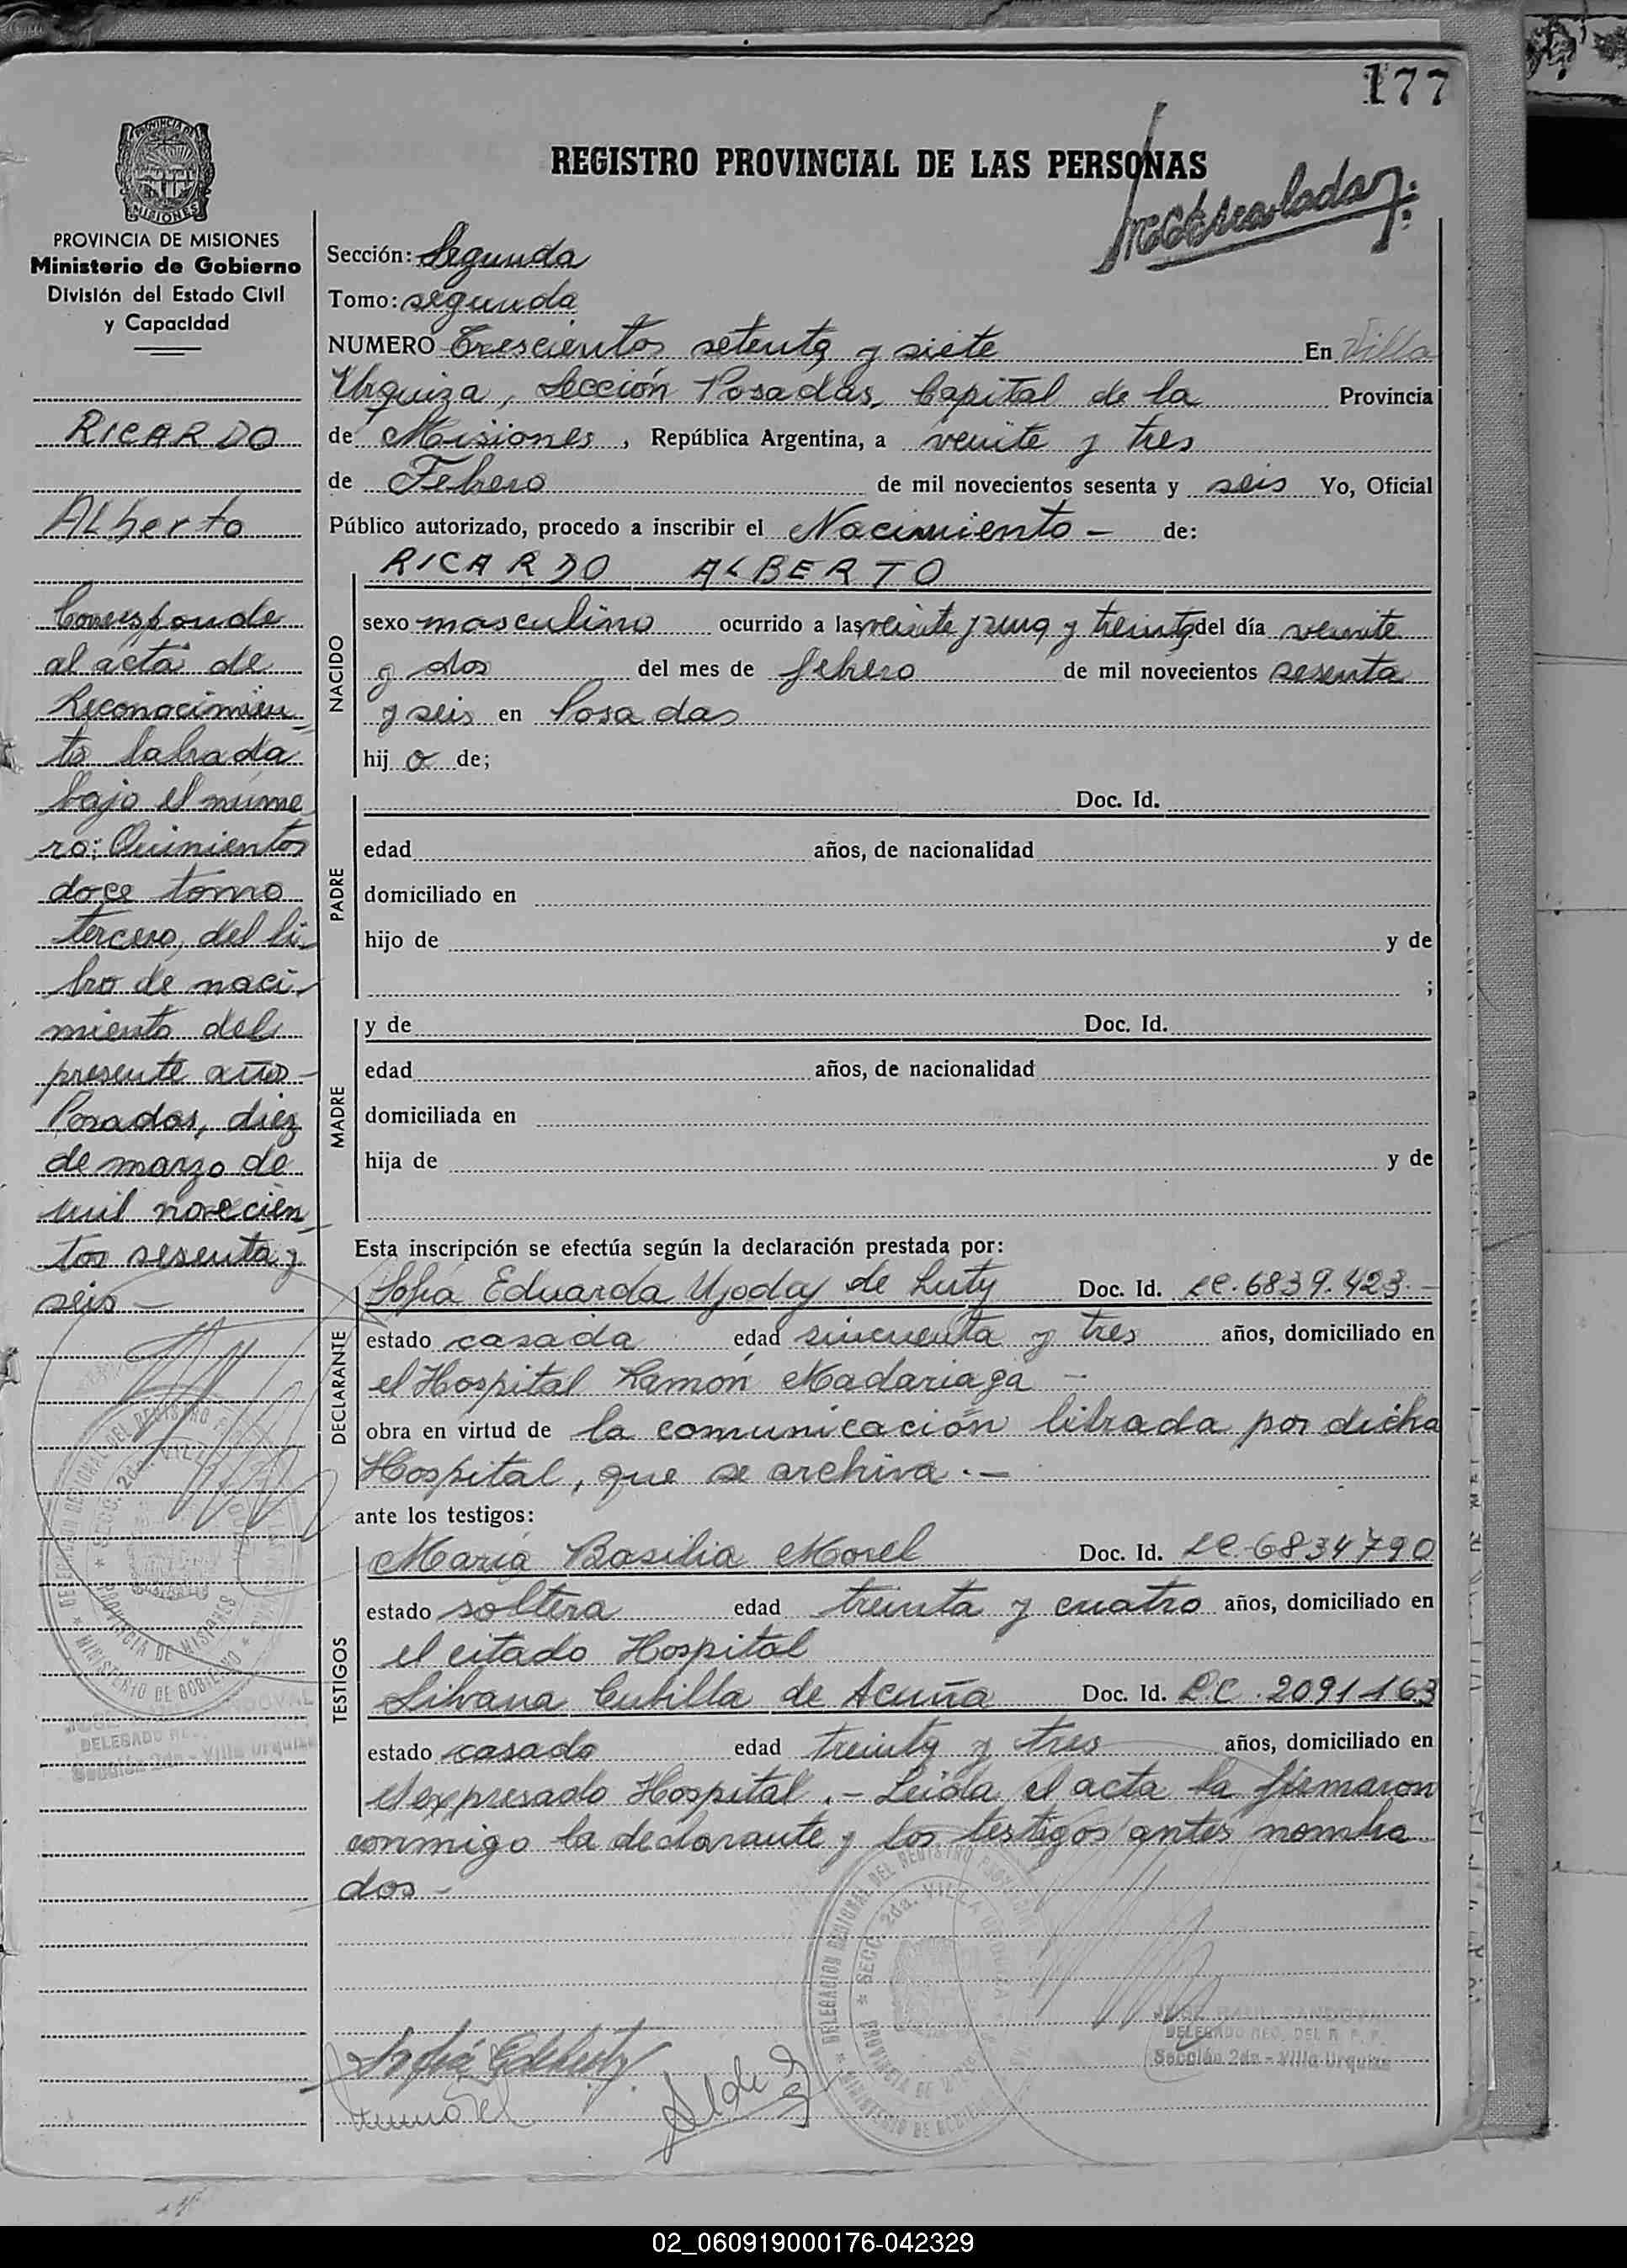 177
REGISTRO PROVINCIAL DE LAS PERSONAS
PROVINCIA DE MISIONES
Ministerio de Gobierno
División del Estado Civil
y Capacidad
RICARDO
Alberto
Corresponde
al acta de
Reconocimien-
to labrada
bajo el núme
ro: Quinientos
doce tomo
tercero, del li-
bro de naci-
miento del
presente año-
Posadas, diez
de marzo de
mil novecien-
tos sesenta y
seis -
Sección: Segunda
Tomo: segunda
NUMERO Trescientos setenta y siete En Villa
Urquiza, Sección Posadas, Capital de la Provincia
de Misiones, República Argentina, a veinte y tres
de Febrero de mil novecientos sesenta y seis Yo, Oficial
Público autorizado, procedo a inscribir el Nacimiento - de:
RICARDO ALBERTO
NACIDO
sexo masculino ocurrido a las veinte y una y treinta del día veinte
y dos del mes de febrero de mil novecientos sesenta
y seis en Posadas
hij o de;
PADRE
Doc. Id.
edad años, de nacionalidad
domiciliado en
hijo de y de
;
MADRE
y de Doc. Id.
edad años, de nacionalidad
domiciliada en
hija de y de
Esta inscripción se efectúa según la declaración prestada por:
DECLARANTE
Sofia Eduarda de Luty Doc. Id. LC. 6839.423.-
estado casada edad sincuenta y tres años, domiciliado en
el Hospital Ramón Madariaga -
obra en virtud de la comunicación librada por dicho
Hospital, que se archiva.-
ante los testigos:
TESTIGOS
María Basilia Morel Doc. Id. LC. 6834790
estado soltera edad treinta y cuatro años, domiciliado en
el citado Hospital
Silvana Cubilla de Acuña Doc. Id. L.C. 2091163
estado casado edad treinta y tres años, domiciliado en
el expresado Hospital.- Leida el acta la firmaron
conmigo la declarante y los testigos antes nombra
dos -
DELEGACION REGIONAL DEL REGISTRO
SECC. 2da. VILLA URQUIZA
PROVINCIA DE MISIONES
MINISTERIO DE GOBIERNO
JOSE RAUL SANDOVAL
DELEGADO REG. DEL R. P. P.
Sección 2da - Villa Urquiza
02_060919000176-042329